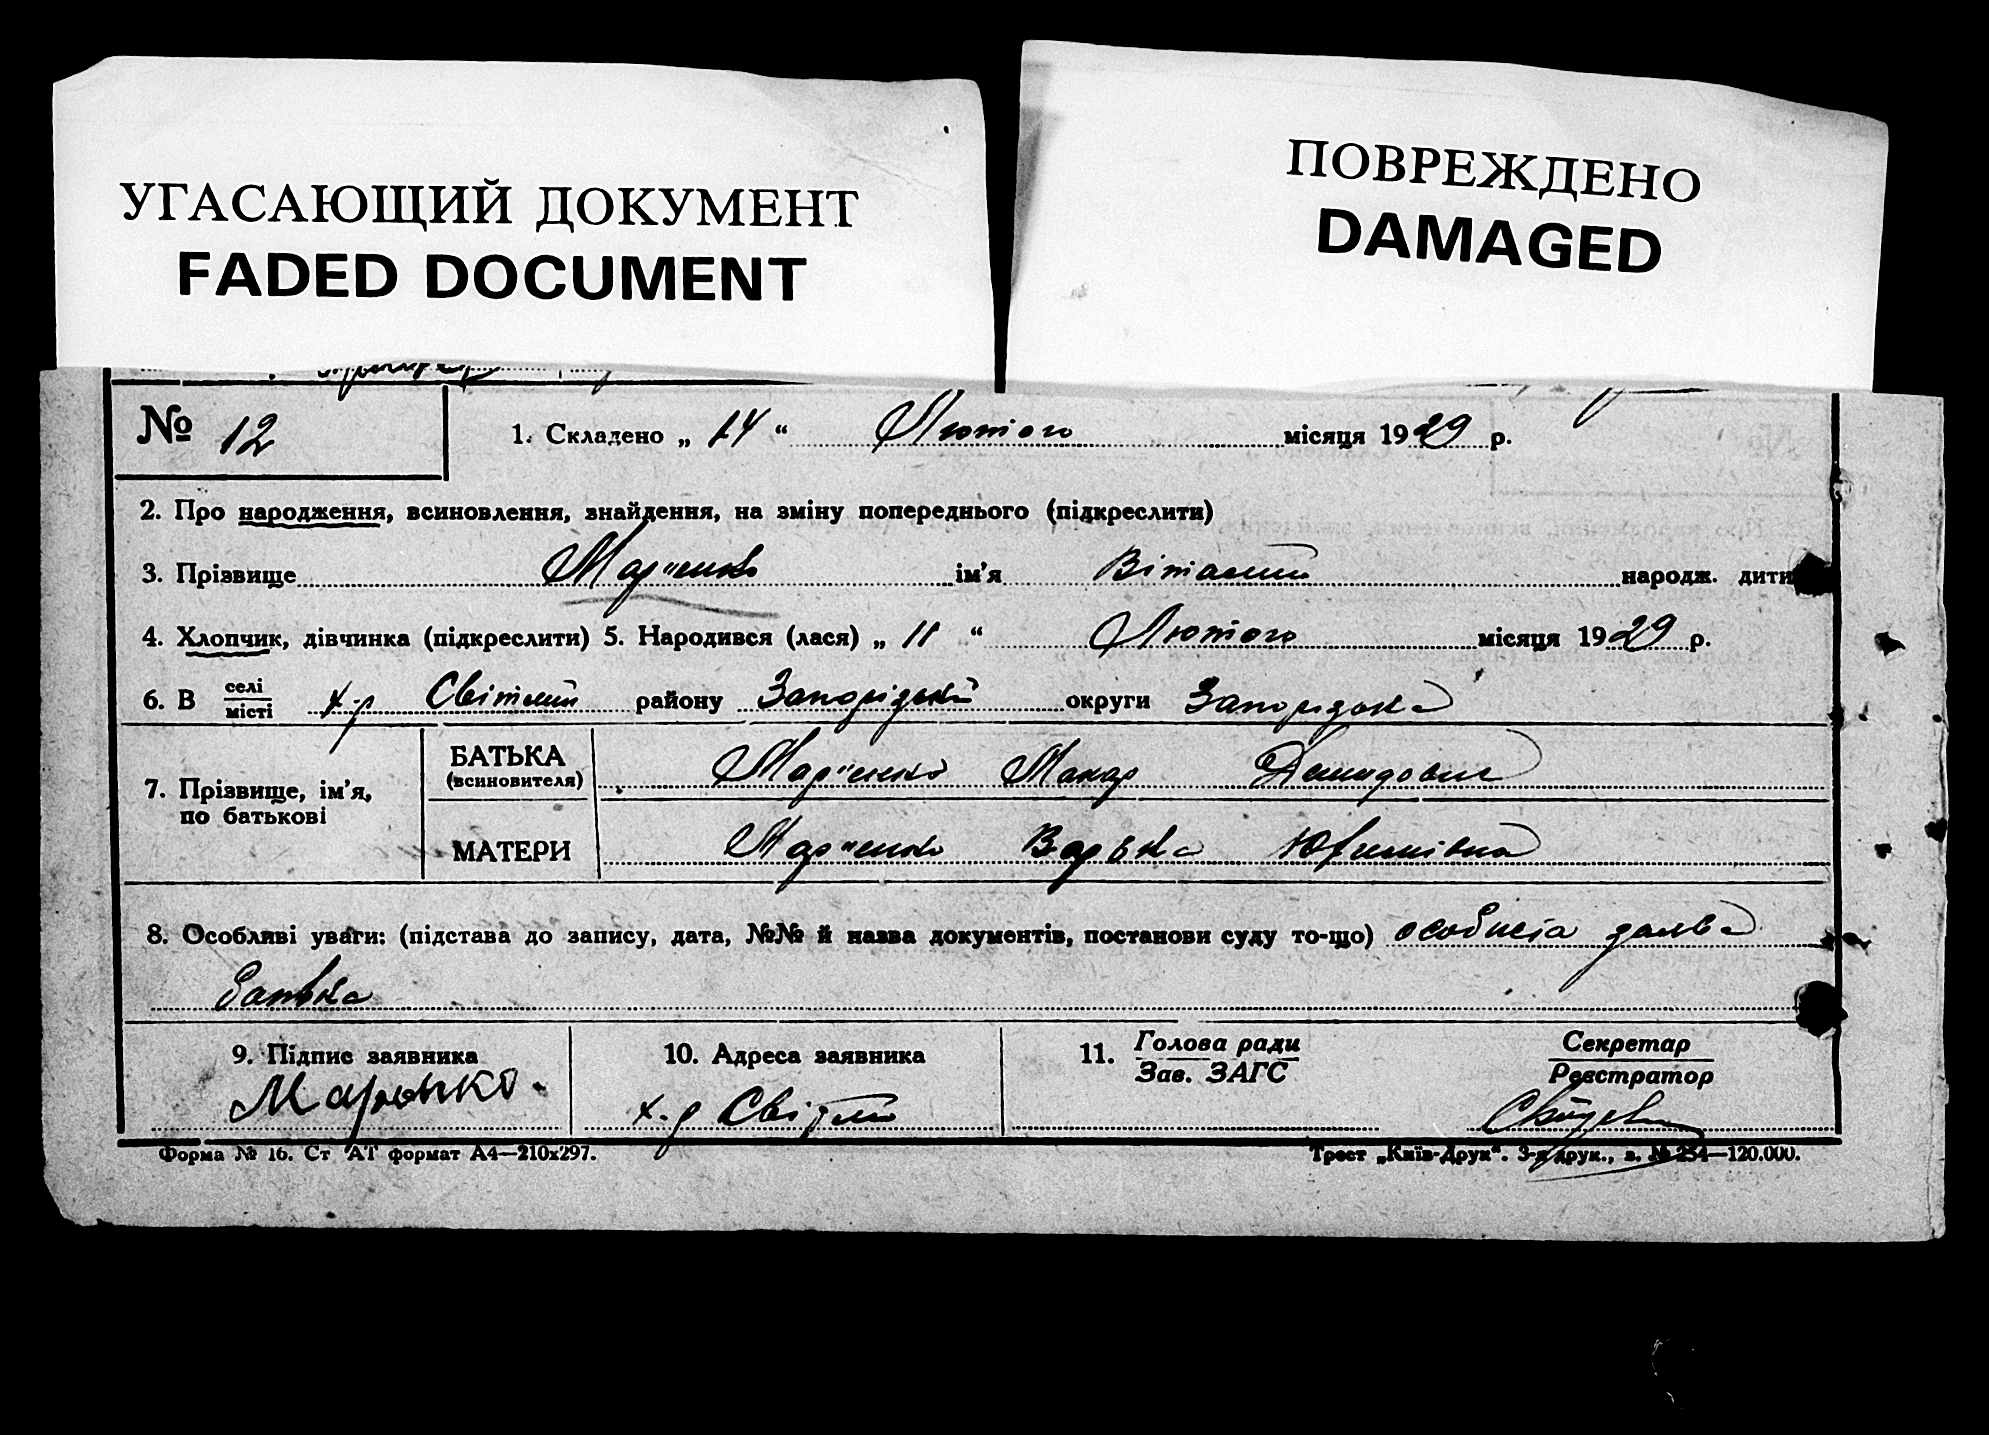 УГАСАЮЩИЙ ДОКУМЕНТ
FADED DOCUMENT
ПОВРЕЖДЕНО
DAMAGED
№ 12
1. Складено „ 14 “ Лютого місяця 1929 р.
2. Про народження, всиновлення, знайдення, на зміну попереднього (підкреслити)
3. Прізвище Мар'єнко ім'я Віталий народж. дити
4. Хлопчик, дівчинка (підкреслити) 5. Народився (лася) „ 11 “ Лютого місяця 1929 р.
6. В селі / місті х-р Світлий району Запорізький округи Запорізька
7. Прізвище, ім'я, по батькові
БАТЬКА (всиновителя) Мар'єнко Макар Демидович
МАТЕРИ Мар'єнко Варька Юхимівна
8. Особливі уваги: (підстава до запису, дата, №№ й назва документів, постанови суду то-що) особиста заява
батька
9. Підпис заявника
10. Адреса заявника
11. Голова ради / Зав. ЗАГС
Секретар / Реєстратор
х-р Світлий
Форма № 16. Ст АТ формат А4—210х297.
Трест „Київ-Друк“. 3-я друк., з. № 254—120.000.